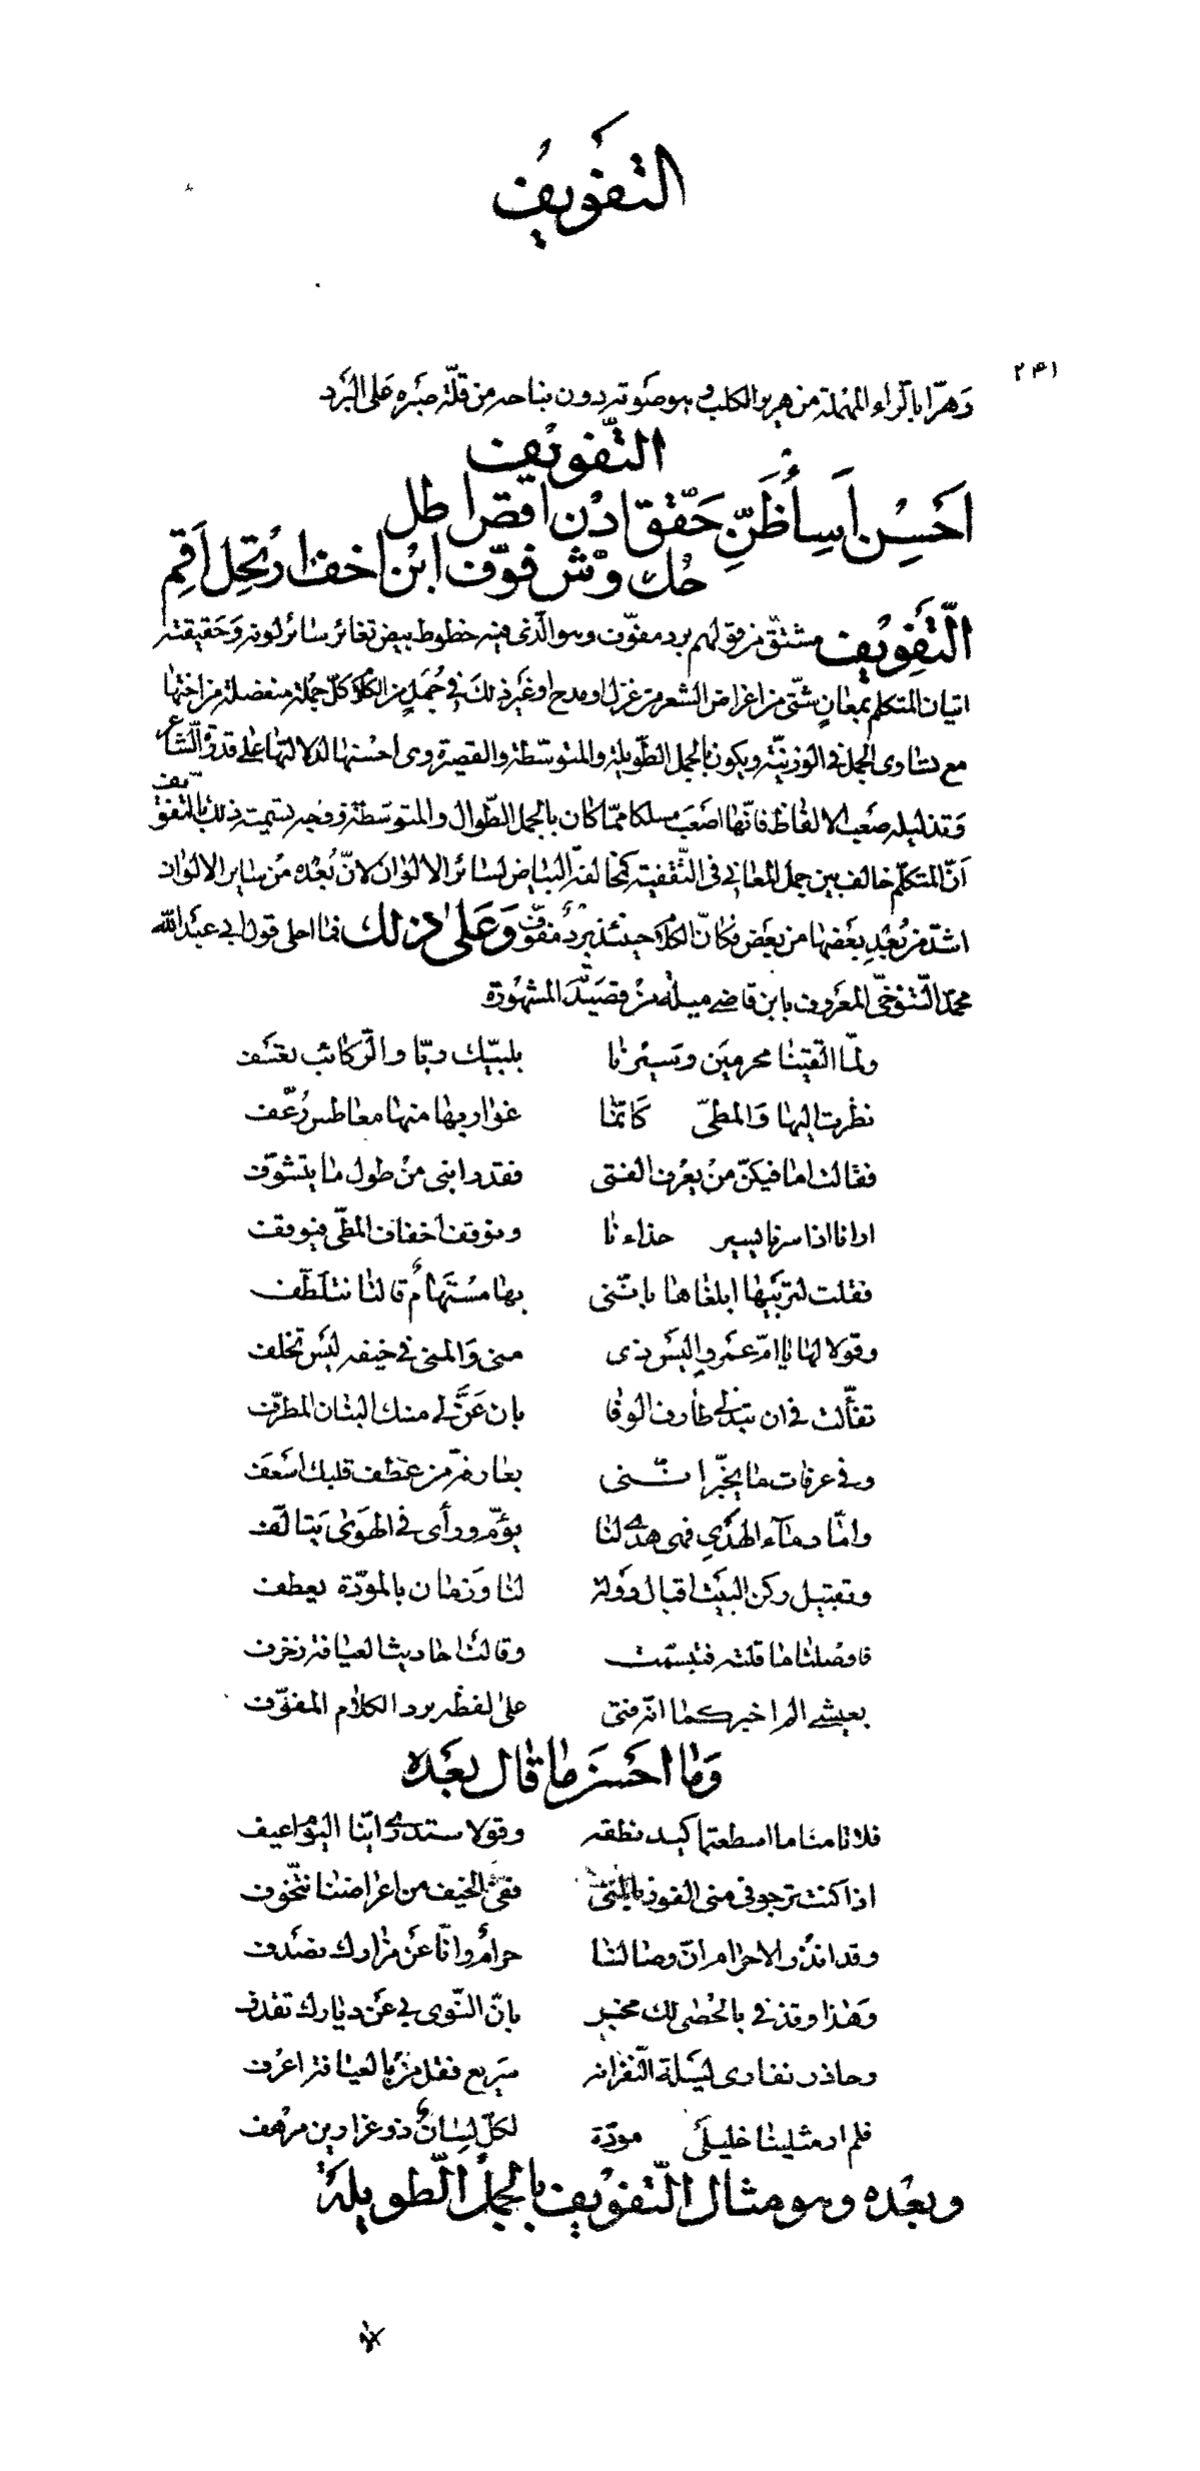 التفويف
٢٤١
وهرّا بالرّاء المهملة من هرير الكلب وهو صوته دون نباحه من قلّة صبره على البرد
التّفويف
احسن اسأ ظنّ حقّق ادن اقص اطل
حك وشّ فوّف ابن اخف ارتحل اقم
التّفويف مشتقّ من قولهم برد مفوّف وهو الّذى فيه خطوط بيض تغائر سائر لونه وحقيقته
اتيان المتكلم بمعانٍ شتّى من اغراض الشعر من غزل او مدح او غير ذلك في جُملٍ من الكلام كلّ جملة منفصلة من اختها
مع تساوى الجمل فى الوزنيّة ويكون بالجمل الطّويلة والمتوسّطة والقصيرة وهى احسنها لدلالتها على قدرة الشّاعر
وتذليله صعب الالفاظ فانّها اصعب مسلكا ممّا كان بالجمل الطّوال والمتوسّطة ووجه تسميته ذلك بالتفويف
انّ المتكلّم خالف بين جمل المعاني فى التّقفية كمخالفة البياض لسائر الالوان لانّ بُعْده من ساير الالوان
اشدّ من بُعْدِ بعضها من بعض فكانّ الكلام حينئذ بردٌ مفوّف وعلى ذلك فما احلى قول ابي عبد الله
محمّد التّنوخيّ المعروف بابن قاضي ميلة من قصيدته المشهورة
ولمّا التقينا محرمين وسيرنا بلبيّك ربّا والرّكائب تعسف
نظرت اليها والمطيّ كانّما غواربها منها معاطس رُعّف
فقالت اما فيكنّ من يعرف الفتى فقد رابنى من طول ما يتشوّف
اراه اذا سرنا يسير حذاءنا ونوقف اخفاف المطّي فيوقف
فقلت لتربيها ابلغاها بانّنى بها مستهامٌ قالتا نتلطّف
وقولا لها يا امّ عمرٍو اليس ذى منى والمنى في خيفه ليس تخلف
تفأّلت في ان تبذلي طارف الوفا بان عَنَّ لي منك البنان المطرّف
وفي عرفات ما يخبّر انّنى بعارفة من عطف قلبك اسعف
وامّا دمآء الهدي فهى هدى لنا يؤمّ ورأى في الهوى يتألّف
وتقبيل ركن البيت اقبال دولة لنا وزمان بالمودّة يعطف
فاوصلتا ما قلته فتبسّمت وقالت احاديث العيافة زخرف
بعيشي الم اخبركما انّه فتى على لفظه برد الكلام المفوّف
وما احسن ما قال بعده
فلا تامنا ما اسطعتما كيد نطقه وقولا ستدرى ايّنا اليوم اعيف
اذا كنت ترجو فى منى الفوز بالمنى ففى الخيف من اعراضنا نتخّوف
وقد انذر الاحرام انّ وصالنا حرامٌ وانّا عن مزارك نصدف
وهذا وقذفي بالحصى لك مخبر بانّ النّوى بي عن ديارك تقذف
وحاذر نفارى ليلة النّفر انه سريع فقل من بالعيافة اعرف
فلم ار مثلينا خليلَى مودّة لكلّ لسانٌ ذو غرارين مرهف
وبعْده وهو مثال التّفويف بالجمل الطّويلة